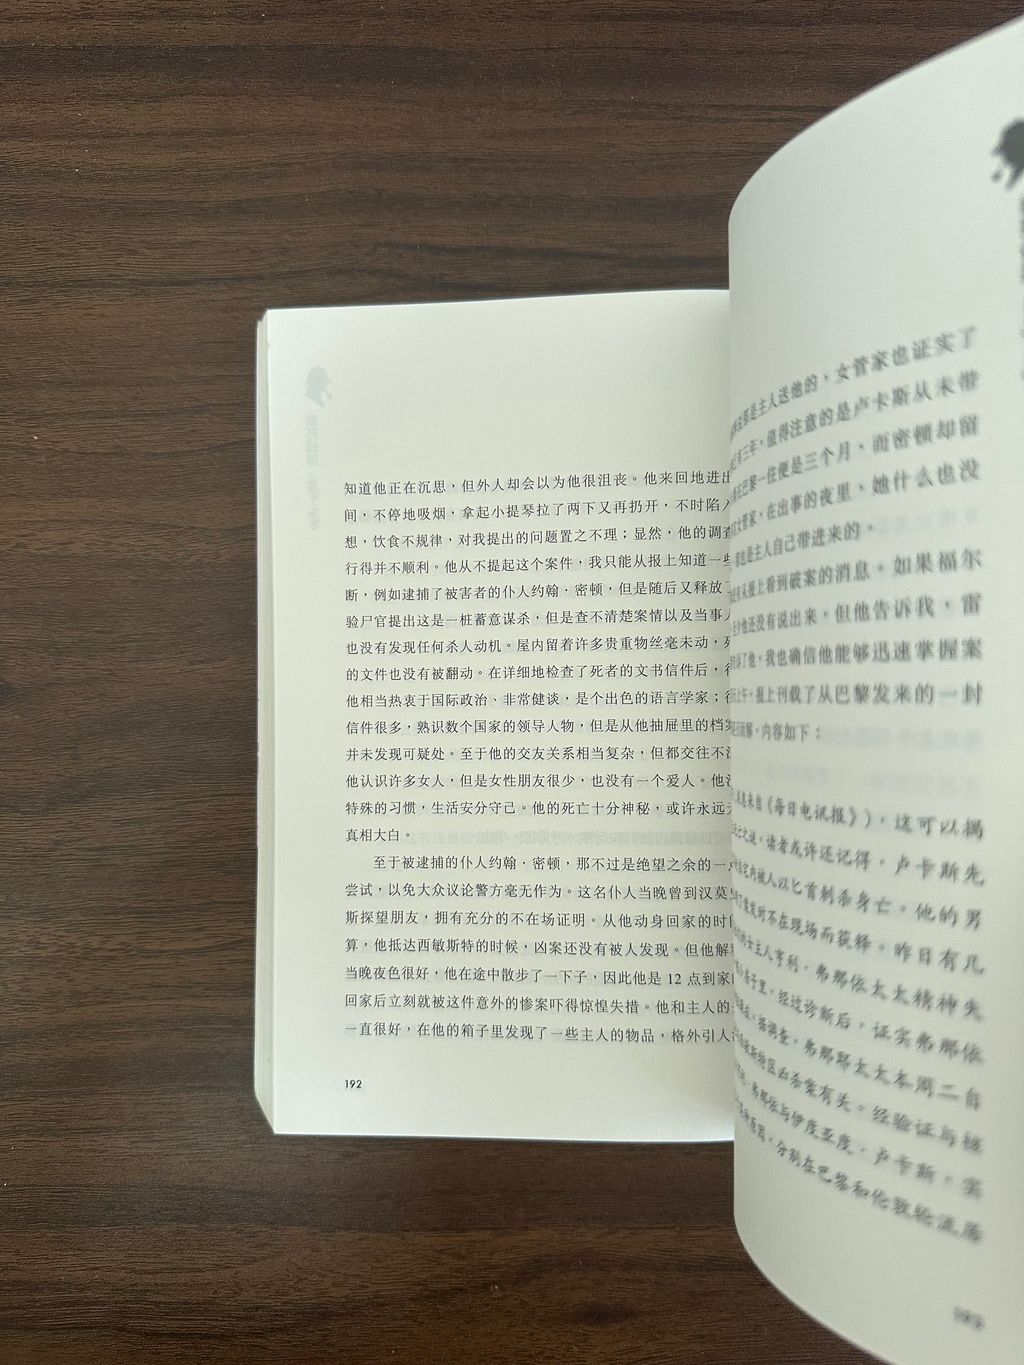 知道他正在沉思，但外人却会以为他很沮丧。他来回地进出
间，不停地吸烟，拿起小提琴拉了两下又再扔开，不时陷入
想，饮食不规律，对我提出的问题置之不理；显然，他的调查
行得并不顺利。他从不提起这个案件，我只能从报上知道一些
断，例如逮捕了被害者的仆人约翰·密顿，但是随后又释放了
验尸官提出这是一桩蓄意谋杀，但是查不清楚案情以及当事人
也没有发现任何杀人动机。屋内留着许多贵重物丝毫未动，死
的文件也没有被翻动。在详细地检查了死者的文书信件后，得
他相当热衷于国际政治、非常健谈，是个出色的语言学家；往
信件很多，熟识数个国家的领导人物，但是从他抽屉里的档案
并未发现可疑处。至于他的交友关系相当复杂，但都交往不深
他认识许多女人，但是女性朋友很少，也没有一个爱人。他没
特殊的习惯，生活安分守己。他的死亡十分神秘，或许永远无
真相大白。
至于被逮捕的仆人约翰·密顿，那不过是绝望之余的一点
尝试，以免大众议论警方毫无作为。这名仆人当晚曾到汉莫史
斯探望朋友，拥有充分的不在场证明。从他动身回家的时间
算，他抵达西敏斯特的时候，凶案还没有被人发现。但他解释
当晚夜色很好，他在途中散步了一下子，因此他是 12 点到家
回家后立刻就被这件意外的惨案吓得惊惶失措。他和主人的
一直很好，在他的箱子里发现了一些主人的物品，格外引人注
192
那是主人送他的，女管家也证实了
有三年，值得注意的是卢卡斯从未带
在巴黎一住便是三个月，而密顿却留
女管家，在出事的夜里，她什么也没
那也是主人自己带进来的。
没有从报上看到破案的消息。如果福尔
至少他还没有说出来，但他告诉我，雷
告诉了他，我也确信他能够迅速掌握案
上午，报上刊载了从巴黎发来的一封
内容如下：
息来自《每日电讯报》），这可以揭
之谜。读者或许还记得，卢卡斯先
内被人以匕首刺杀身亡。他的男
发时不在现场而获释。昨日有几
女主人亨利·弗那依太太精神失
子里。经过诊断后，证实弗那依
据调查，弗那耶太太本周二自
斯特区凶杀案有关。经验证与
弗那依与伊度亚度·卢卡斯，实
原因，分别在巴黎和伦敦轮流居
193